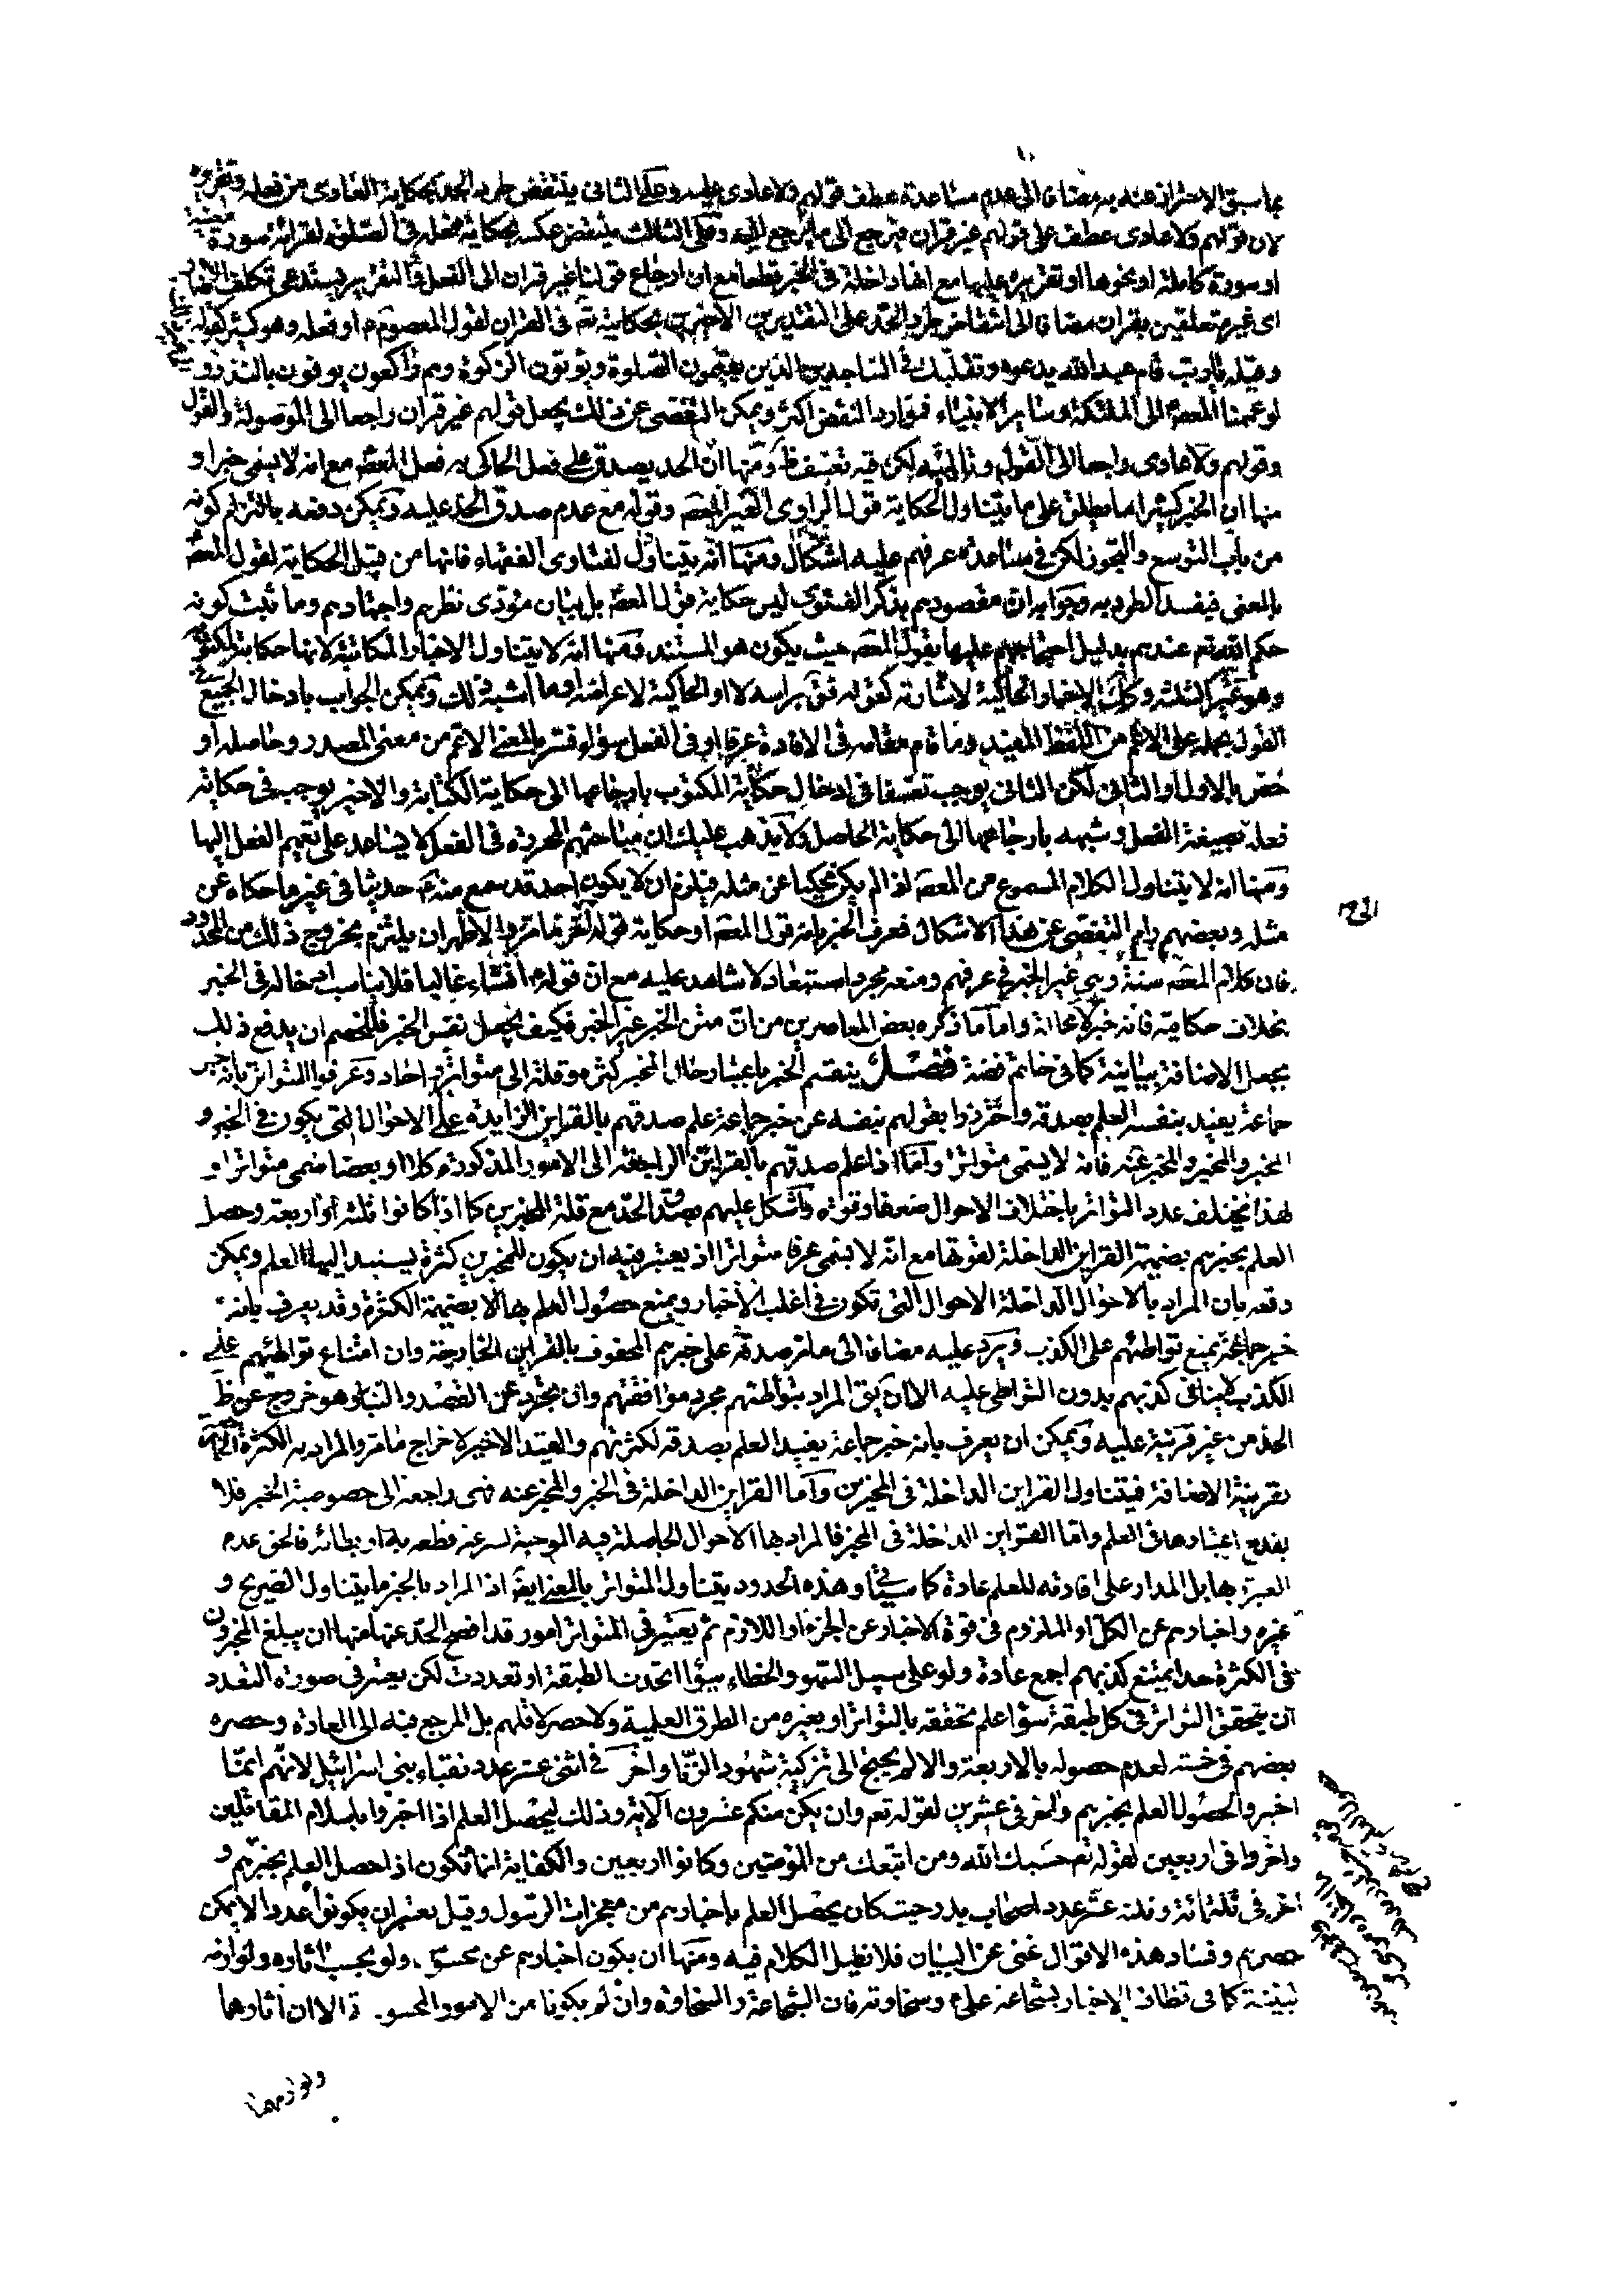 بما سبق الاحتراز عنه به مضافا الى عدم مساعدة عطف قولهم ولا عادى عليه وعلى الثانى ينتقض طرد الحد بحكاية العادى من فعله وتقريره
لان قولهم ولا عادى عطف على قولهم غير قران فيرجع الى ما يرجع اليه وعلى الثالث ينتقض عكسه بحكاية فعله فى الصلوة لقرائة سورة
او سورة كاملة او نحوها او تقريره عليها مع انها داخلة فى الخبر قطعا مع ان ارجاع قولنا غير قران الى الفعل فى التقرير يستدعى تكلف
اى غير متعلقين بقران مضافا الى انتقاض طرد الحد على التقديرين الاخيرين بحكايته تع فى القران لقول المعصوم او فعله وهو كثير كقوله
وقيله يا رب قام عبد الله يدعوه وتقلبك فى الساجدين الذين يقيمون الصلوة ويؤتون الزكوة وهم راكعون يوفون بالنذر و
لو عممنا المعصوم الى الملئكة وسائر الانبياء فموارد النقض اكثر ويمكن التفصى عن ذلك بجعل قولهم غير قران راجعا الى الموصولة والقول
وقولهم ولا عادى راجعا الى القول وتالييه لكن فيه تعسف ظ ومنها ان الحد يصدق على فعل الحاكى به فعل المعصوم مع انه لا يسمى خبرا و
منها ان الخبر كثيرا ما يطلق على ما يتناول الحكاية قول الراوى الغير المعصوم وقوله مع عدم صدق الحد عليه ويمكن دفعه بالتزام كونه
من باب التوسع والتجوز لكن فى مساعدة عرفهم عليه اشكال ومنها انه يتناول لفتاوى الفقهاء فانها من قبيل الحكاية لقول المعصوم
بالمعنى فيفسد الطرد به وجوابه ان مقصودهم بذكر الفتوى ليس حكاية قول المعصوم بل بيان مؤدى نظرهم واجتهادهم وما ثبت كونه
حكم الله تع عندهم بدليل احتجاجهم عليها بقول المعصوم حيث يكون هو المستند ومنها انه لا يتناول الاخبار المكاتبة لانها حكاية المكتوب
وهو غير الثلثة وكذا الاخبار الحاكية لاشارته كقوله فق براسه لا او الحاكية لاعراضه وما اشبه ذلك ويمكن الجواب بادخال الجميع فى
القول بحمله على الاعم من اللفظ المفيد وما قام مقامه فى الافادة عرفا او فى الفعل سواء فسر بالمعنى الاعم من معنى المصدر وحاصله او
خص بالاول او الثانى لكن الثانى يوجب تعسفا فى ادخال حكاية المكتوب بارجاعها الى حكاية الكتابة والاخير يوجبه فى حكاية
فعله بصيغة الفعل وشبهه بارجاعها الى حكاية الحاصل ولا يذهب عليك ان مباحثهم المحررة فى الفعل لا يساعد على تعميم الفعل اليها
ومنها انه لا يتناول الكلام المسموع من المعصوم اذا لم يكن محكيا عن مثله فيلزم ان لا يكون احد قد سمع منه حديثا فى غير ما حكاه عن
مثله وبعضهم رام التفصى عن هذا الاشكال فعرف الخبر بانه قول المعصوم او حكاية قوله الى اخر ما مر والاظهر ان يلتزم بخروج ذلك من الحدود
فان كلام المعصوم سنة وهى غير الخبر فى عرفهم ومنعه مجرد استبعاد لا شاهد عليه مع ان قوله انشاء غالبا فلا يناسب ادخاله فى الخبر
بخلاف حكايته فانه خبر لا محالة واما ما ذكره بعض المعاصرين من ان متن الخبر غير الخبر فكيف يجعل نفس الخبر فللخصم ان يدفع ذلك
بجعل الاضافة بيانية كما فى خاتم فضة فصل ينقسم الخبر باعتبار حال المخبر كثرة وقلة الى متواتر واحاد وعرفوا المتواتر بانه خبر
جماعة يفيد بنفسه العلم بصدقه واحترزوا بقولهم بنفسه عن خبر جماعة علم صدقهم بالقراين الزايدة على الاحوال التى يكون فى الخبر و
المخبر والمخبر والمخبر عنه فانه لا يسمى متواترا واما اذا علم صدقهم بالقراين الراجعة الى الامور المذكورة كلا او بعضا فسمى متواترا و
لهذا يختلف عدد التواتر باختلاف الاحوال ضعفا وقوة واشكل عليهم بصدق الحد مع قلة المخبرين كما اذا كانوا ثلثة او اربعة وحصل
العلم بخبرهم بضميمة القراين الداخلة لقوتها مع انه لا يسمى عرفا متواترا اذ يعتبر فيه ان يكون للمخبرين كثرة يستند اليها العلم ويمكن
دفعه بان المراد بالاحوال الداخلة الاحوال التى تكون فى اغلب الاخبار ويمنع حصول العلم بها الا بضميمة الكثرة وقد يعرف بانه
خبر جماعة يمنع تواطئهم على الكذب ويرد عليه مضافا الى ما مر صدقه على خبرهم المحفوف بالقراين الخارجة وان امتناع تواطئهم على
الكذب لا ينافى كذبهم بدون التواطى عليه الا ان يق المراد بتواطئهم مجرد موافقتهم وان تجرد عن القصد والتبانى وهو خروج عن ظ
الحد من غير قرينة عليه ويمكن ان يعرف بانه خبر جماعة يفيد العلم بصدقه لكثرتهم والقيد الاخير لاخراج ما مر والمراد به الكثرة الخاصة
بقرينة الاضافة فيتناول القراين الداخلة فى المخبرين واما القراين الداخلة فى الخبر والمخبر عنه فهى راجعة الى خصوصية الخبر فلا
يقدح اعتبارها فى العلم واما القراين الداخلة فى المخبر فالمراد بها الاحوال الحاصلة فيه الموجبة لسرعة قطعه به او بطائه فالحق عدم
العبرة بها بل المدار على افادته للعلم عادة كما سيأتى وهذه الحدود يتناول المتواتر بالمعنى ايضا اذ المراد بالخبر ما يتناول الصريح و
غيره واخبارهم عن الكل او الملزوم فى قوة الاخبار عن الجزء او اللازم ثم يعتبر فى المتواتر امور قد افصح الحد عنها منها ان يبلغ المخبرون
فى الكثرة حدا يمتنع كذبهم اجمع عادة ولو على سبيل السهو والخطاء سواء اتحدت الطبقة او تعددت لكن يعتبر فى صورة التعدد
ان يتحقق التواتر فى كل طبقة سواء علم تحققه بالتواتر او بغيره من الطرق العلمية ولا حصر لاقلهم بل المرجع فيه الى العادة وحصره
بعضهم فى خمسة لعدم حصوله بالاربعة والا لم يحتج الى تزكية شهود الزنا واخر فى اثنى عشر عدد نقباء بنى اسرائيل لانهم انما
اخبروا لحصول العلم بخبرهم واخر فى عشرين لقوله تع وان يكن منكم عشرون الاية وذلك ليحصل العلم اذا اخبروا باسلام المقاتلين
واخروا فى اربعين لقوله تع حسبك الله ومن اتبعك من المؤمنين وكانوا اربعين والكفاية انما تكون اذا حصل العلم بخبرهم و
اخر فى ثلثمائة وثلثة عشر عدد اصحاب بدر حيث كان يحصل العلم باخبارهم من معجزات الرسول وقيل يعتبر ان يكونوا عددا لا يمكن
حصرهم وفساد هذه الاقوال غنى عن البيان فلا نطيل الكلام فيه ومنها ان يكون اخبارهم عن محسوس ولو بحسب اثاره ولوازمه
البينة كما فى تظافر الاخبار بشجاعة على ع وسخاوته فان الشجاعة والسخاوة وان لم يكونا من الامور المحسوسة الا ان اثارها
ولوازمها